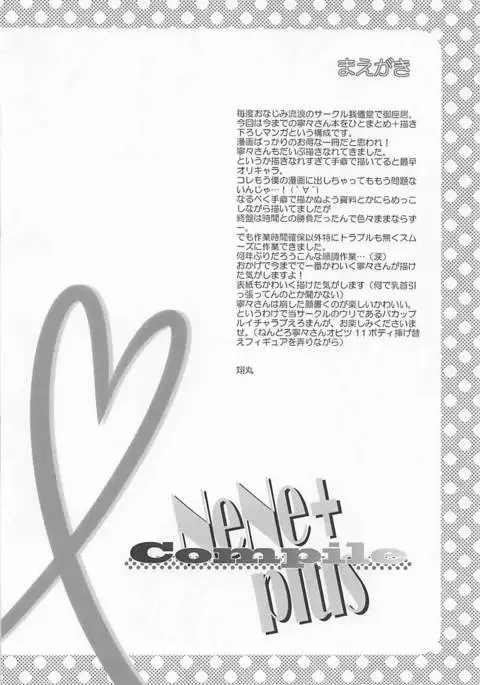 まえがき
毎度おなじみ流浪のサークル我儘堂で御座居。
今回は今までの寧々さん本をひとまとめ＋描き
下ろしマンガという構成です。
漫画ばっかりのお得な一冊だと思われ！
寧々さんもだいぶ描きなれてきました。
というか描きなれすぎて手癖で描いてると最早
オリキャラ。
コレもう僕の漫画に出しちゃってももう問題な
いんじゃ…！(ﾟ∀ﾟ)
なるべく手癖で描かぬよう資料とかにらめっこ
しながら描いてましたが
終盤は時間との勝負だったんで色々ままならず
ー。
でも作業時間確保以外特にトラブルも無くスム
ーズに作業できました。
何年ぶりだろうこんな順調作業…(涙)
おかげで今までで一番かわいく寧々さんが描け
た気がしますよ！
表紙もかわいく描けた気がします(何で乳首引
っ張ってんのとか聞かない)
寧々さんは崩した顔書くのが楽しいかわいい。
というわけで当サークルのウリであるバカップ
ルイチャラブえろまんが、お楽しみくださいま
せ。(ねんどろ寧々さんオビツ 11 ボディ挿げ替
えフィギュアを弄りながら)
翔丸
NeNe+
Compile
plus